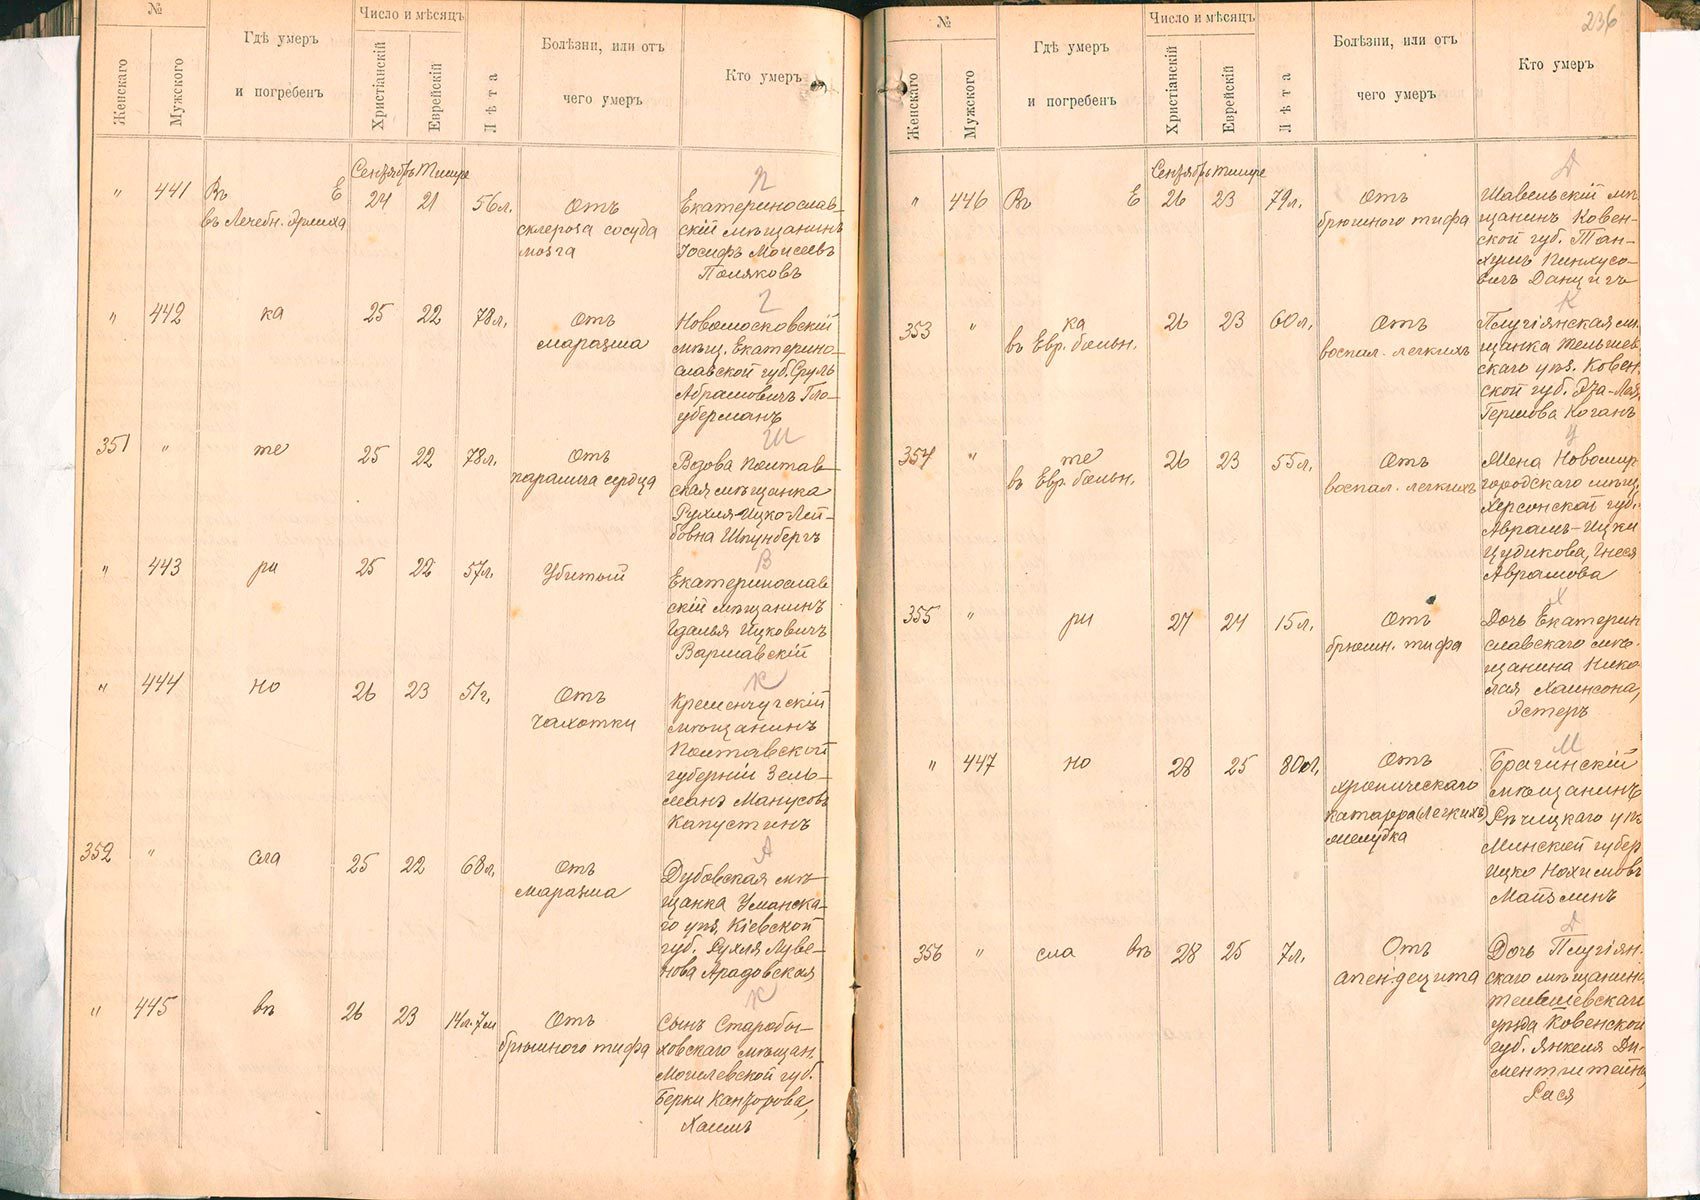 №
Женскаго
Мужского
Гдѣ умеръ
и погребенъ
Число и мѣсяцъ
Христіанскій
Еврейскій
Лѣта
Болѣзни, или отъ
чего умеръ
Кто умеръ
Сентябрь Тишре
"
441
Въ Е
въ Лечебн.
24
21
56л.
Отъ
склероза сосуда
мозга
П
Екатеринослав-
скій мѣщанинъ
Іосифъ Моисеевъ
Поляковъ
"
442
ка
25
22
78л.
Отъ
маразма
Г
Новомосковскій
мѣщ. Екатерино-
славской губ. Сруль
Абрамовичъ Гло-
уберманъ
351
"
те
25
22
78л.
Отъ
паралича сердца
Ш
Вдова Полтав-
ская мѣщанка
Рухля-Ицко-Лей-
бовна Шпунбергъ
"
443
ри
25
22
57л.
Убитый
В
Екатеринослав
скій мѣщанинъ
Гдалья Ицковичъ
Варшавскій
"
444
но
26
23
51г.
Отъ
чахотки
К
Кременчугскій
мѣщанинъ
Полтавской
губерніи Зель-
манъ Манусовъ
Капустинъ
352
"
сла
25
22
68л.
Отъ
маразма
А
Дубовская мѣ-
щанка Уманска-
го уѣз. Кіевской
губ. Рухля Луве-
нова Арадовская
"
445
въ
26
23
14л. 7м
Отъ
брюшного тифа
К
Сынъ Старобы-
ховскаго мѣщан.
Могилевской губ.
Берки Канторова,
Хаимъ
236
№
Женскаго
Мужского
Гдѣ умеръ
и погребенъ
Число и мѣсяцъ
Христіанскій
Еврейскій
Лѣта
Болѣзни, или отъ
чего умеръ
Кто умеръ
Сентябрь Тишре
"
446
Въ Е
26
23
79л.
Отъ
брюшного тифа
Д
Шавельскій мѣ-
щанинъ Ковен-
ской губ. Тан-
хумъ Пинхусо-
вичъ Данцигъ
353
"
ка
въ Евр. больн.
26
23
60л.
Отъ
воспал. легкихъ
К
Плугіянская мѣ-
щанка Тельшев.
скаго уѣз. Ковен.
ской губ. Эза-Лея
Гершова Коганъ
354
"
те
въ Евр. больн.
26
23
55л.
Отъ
воспал. легкихъ
Ц
Жена Новомир-
городскаго мѣщ.
Херсонской губ.
Аврамъ-Ицки
Цудикова, Гнеся
Аврамова
355
"
ри
27
24
15л.
Отъ
брюшн. тифа
Х
Дочь Екатерин
славскаго мѣ-
щанина Нико-
лая Хаинсона,
Эстеръ
"
447
но
28
25
80л.
Отъ
хроническаго
катарра (легкихъ)
желудка
М
Брагинскій
мѣщанинъ
Рѣчицкаго уѣз
Минской губер
Ицко Нохимовъ
Майзлинъ
356
"
сла въ
28
25
7л.
Отъ
апендецита
Д
Дочь Плугіян-
скаго мѣщанина
тельшевскаго
уѣзда Ковенской
губ. Янкеля Ди-
ментштейна,
Хася